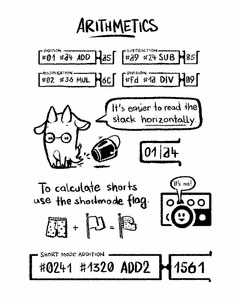 ARITHMETICS
ADDITION
#01 #a4 ADD a5
SUBTRACTION
#a9 #24 SUB 85
MULTIPLICATION
#02 #36 MUL 6C
DIVISION
#fd #18 DIV 09
It's easier to read the
stack horizontally.
01 a4
To calculate shorts
use the shortmode flag.
It's me!
+ =
SHORT MODE ADDITION
#0241 #1320 ADD2 1561